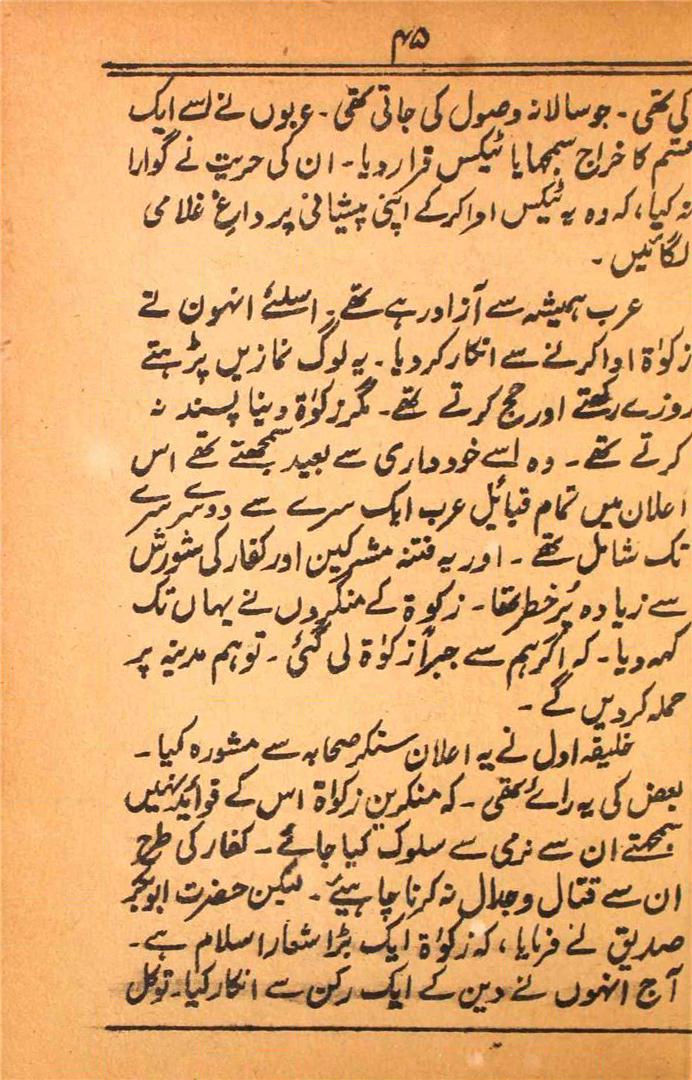 ۴۵
کی تھی ۔ جو سالانہ وصول کی جاتی تھی ۔ عربوں نے اسے ایک
قسم کا خراج سمجھا یا ٹیکس قرار دیا ۔ ان کی حریت نے گوارا
نہ کیا، کہ وہ یہ ٹیکس ادا کرکے اپنی پیشانی پر داغِ غلامی
لگائیں ۔
عرب ہمیشہ سے آزاد رہے تھے ۔ اسلئے انہون نے
زکوٰۃ ادا کرنے سے انکار کر دیا ۔ یہ لوگ نمازیں پڑہتے
روزے رکھتے اور حج کرتے تھے ۔ مگر زکوٰۃ دینا پسند نہ
کرتے تھے ۔ وہ اسے خودداری سے بعید سمجھتے تھے اس
اعلان میں تمام قبائل عرب ایک سرے سے دوسرے سرے
تک شامل تھے ۔ اور یہ فتنہ مشرکین اور کفار کی شورش
سے زیادہ پُر خطر تھا ۔ زکوۃ کے منکروں نے یہاں تک
کہہ دیا ۔ کہ اگر ہم سے جبراً زکوٰۃ لی گئی ۔ تو ہم مدینہ پر
حملہ کر دیں گے ۔
خلیفہ اول نے یہ اعلان سنکر صحابہ سے مشورہ کیا ۔
بعض کی یہ رائے تھی ۔ کہ منکرین زکواۃ اس کے فوائد نہیں
سمجھتے ان سے نرمی سے سلوک کیا جائے ۔ کفار کی طرح
ان سے قتال و جدال نہ کرنا چاہیئے ۔ لیکن حضرت ابوبکر
صدیق نے فرمایا، کہ زکوٰۃ ایک بڑا شعار اسلام ہے ۔
آج انہوں نے دین کے ایک رکن سے انکار کیا ۔ تو کل